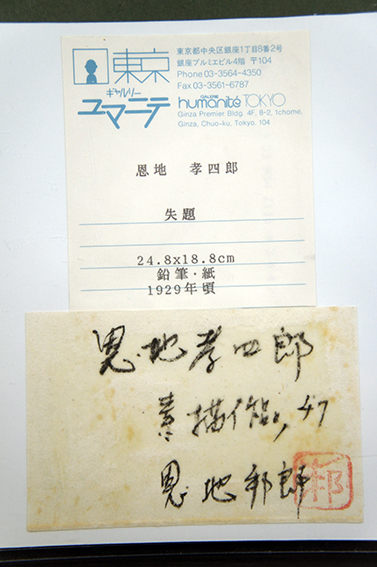 東京
ギャルリー
ユマニテ
東京都中央区銀座1丁目8番2号
銀座プルミエビル4階 〒104
Phone 03-3564-4350
Fax 03-3561-6787
GALERIE
humanité TOKYO
Ginza Premier Bldg. 4F, 8-2, 1chome,
Ginza, Chuo-ku, Tokyo. 104
恩地 孝四郎
失題
24.8x18.8cm
鉛筆・紙
1929年頃
恩地孝四郎
素描作品, 47
恩地邦郎
邦